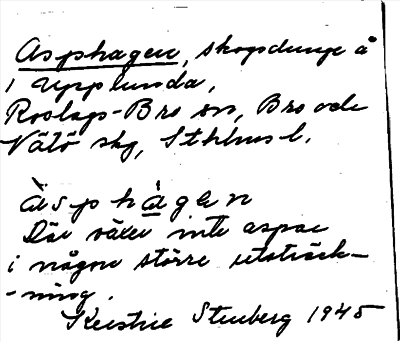 Asphagen, skogsdunge å
1 Upplunda,
Roslags-Bro sn, Bro och
Vätö skg, Sthlms l.
àsphàgen
Där växer inte aspar
i någon större utsträck-
-ning.
Kerstin Stenberg 1945